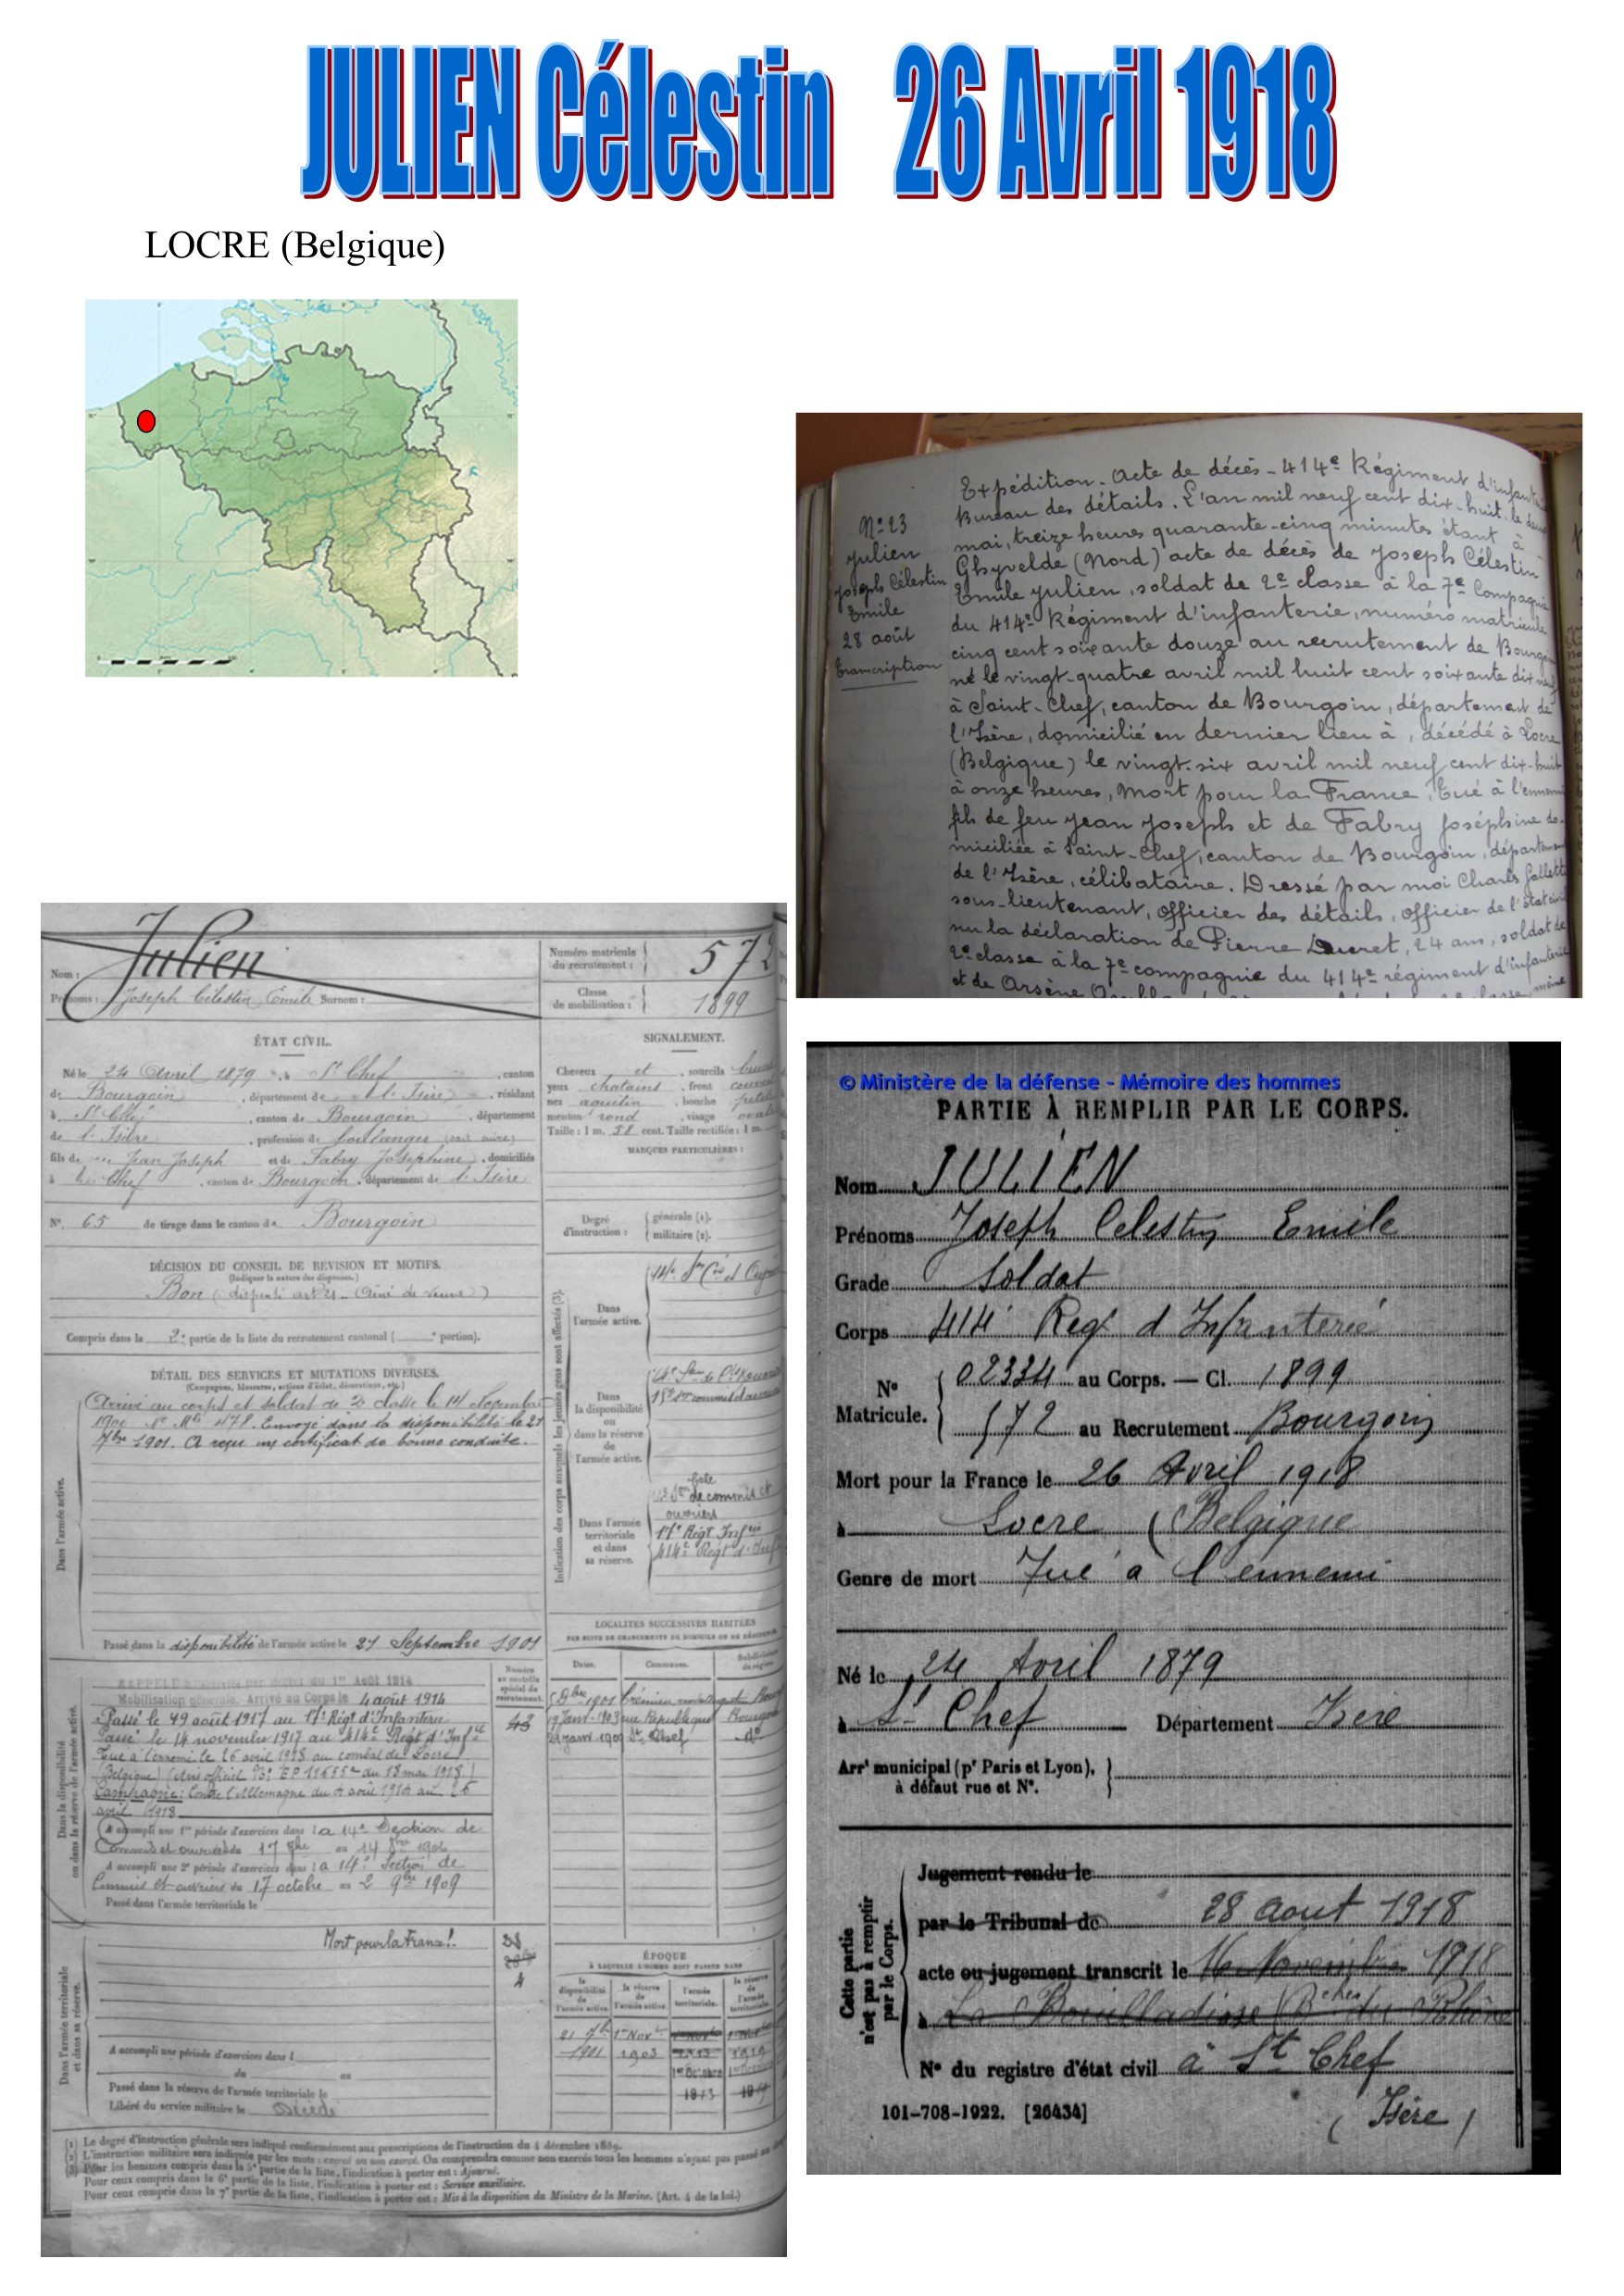 JULIEN Célestin 26 Avril 1918
LOCRE (Belgique)
N° 23
Julien
Joseph Célestin
Emile
28 août
transcription
Expédition. Acte de décès - 414e Régiment d'infanterie
Bureau des détails. L'an mil neuf cent dix-huit, le deux
mai, treize heures quarante-cinq minutes étant à
Ghyvelde (Nord) acte de décès de Joseph Célestin
Emile Julien, soldat de 2e classe à la 7e Compagnie
du 414e Régiment d'infanterie, numéro matricule
cinq cent soixante douze au recrutement de Bourgoin
né le vingt-quatre avril mil huit cent soixante dix neuf
à Saint-Chef, canton de Bourgoin, département de
l'Isère, domicilié en dernier lieu à, décédé à Locre
(Belgique) le vingt-six avril mil neuf cent dix-huit
à onze heures, Mort pour la France, tué à l'ennemi
fils de feu Jean Joseph et de Fabry Joséphine do-
miciliée à Saint-Chef, canton de Bourgoin, département
de l'Isère, célibataire. Dressé par moi Charles
sous-lieutenant, officier des détails, officier de l'état civil
sur la déclaration de Pierre 24 ans, soldat de
2e classe à la 7e compagnie du 414e régiment d'infanterie
et de Arsène
Nom : Julien
Prénoms : Joseph Célestin Emile Surnom :
Numéro matricule du recrutement : 572
Classe de mobilisation : 1899
ÉTAT CIVIL.
Né le 24 Avril 1879, à St Chef, canton
de Bourgoin, département de l'Isère, résidant
à St Chef, canton de Bourgoin, département
de l'Isère, profession de boulanger
fils de Jean Joseph et de Fabry Joséphine, domiciliés
à St Chef, canton de Bourgoin, département de l'Isère
N° 65 de tirage dans le canton de Bourgoin
DÉCISION DU CONSEIL DE REVISION ET MOTIFS.
(Indiquer la nature des dispenses.)
Bon (dispensé art 21 - Ainé de veuve)
Compris dans la 2e partie de la liste du recrutement cantonal ( e portion).
DÉTAIL DES SERVICES ET MUTATIONS DIVERSES.
(Campagnes, blessures, actions d'éclat, décorations, etc.)
Arrivé au corps et soldat de 2e classe le 14 Novembre
1900 N° Mle 478. Envoyé dans la disponibilité le 21
7bre 1901. A reçu un certificat de bonne conduite.
Dans l'armée active.
Passé dans la disponibilité de l'armée active le 21 Septembre 1901
RAPPELÉ à l'activité par décret du 1er Août 1914
Mobilisation générale. Arrivé au Corps le 4 août 1914
Passé le 19 août 1917 au 17e Régt d'Infanterie
Passé le 14 novembre 1917 au 414e Régt d'Infie
Tué à l'ennemi le 26 avril 1918 au combat de Locre
(Belgique) (Avis officiel du 18 mai 1918)
Campagne: Contre l'Allemagne du 4 août 1914 au 26
avril 1918
Dans la disponibilité
ou dans la réserve de l'armée active.
A accompli une 1re période d'exercices dans la 14e Section de
Commis et ouvriers du 17 au 14
A accompli une 2e période d'exercices dans la 14e Section de
Commis et ouvriers du 17 octobre au 2 9bre 1909
Passé dans l'armée territoriale le
Mort pour la France!
Dans l'armée territoriale
et dans sa réserve.
A accompli une période d'exercices dans l
du au
Passé dans la réserve de l'armée territoriale le
Libéré du service militaire le Décédé
SIGNALEMENT.
Cheveux et sourcils bruns
yeux chatains, front couvert
nez aquilin, bouche petite
menton rond, visage ovale
Taille : 1 m. 58 cent. Taille rectifiée : 1 m.
MARQUES PARTICULIÈRES :
Degré d'instruction : générale (1). militaire (2).
Indication des corps auxquels les jeunes gens sont affectés (3).
Dans l'armée active.
Dans la disponibilité ou dans la réserve de l'armée active.
Dans l'armée territoriale et dans sa réserve.
de commis et
ouvriers
17e Régt Infrie
414e Régt d'Inf
LOCALITÉS SUCCESSIVES HABITÉES
PAR SUITE DE CHANGEMENTS DE DOMICILE OU DE RÉSIDENCE
Dates. Communes. Subdivisions de région.
Numéro au contrôle spécial du recrutement.
43
ÉPOQUE
À LAQUELLE L'HOMME DOIT PASSER DANS
la disponibilité de l'armée active. la réserve de l'armée active. l'armée territoriale. la réserve de l'armée territoriale.
(1) Le degré d'instruction générale sera indiqué conformément aux prescriptions de l'instruction du 4 décembre 1889.
(2) L'instruction militaire sera indiquée par les mots : exercé ou non exercé. On comprendra comme non exercés tous les hommes n'ayant pas passé
(3) Pour les hommes compris dans la 5e partie de la liste, l'indication à porter est : Ajourné.
Pour ceux compris dans la 6e partie de la liste, l'indication à porter est : Service auxiliaire.
Pour ceux compris dans la 7e partie de la liste, l'indication à porter est : Mis à la disposition du Ministre de la Marine. (Art. 4 de la loi.)
© Ministère de la défense - Mémoire des hommes
PARTIE À REMPLIR PAR LE CORPS.
Nom JULIEN
Prénoms Joseph Celestin Emile
Grade Soldat
Corps 414e Regt d'Infanterie
N° Matricule. 02334 au Corps. — Cl. 1899
572 au Recrutement Bourgoin
Mort pour la France le 26 Avril 1918
à Locre (Belgique
Genre de mort Tué à l'ennemi
Né le 24 Avril 1879
à St Chef Département Isère
Arrt municipal (pr Paris et Lyon),
à défaut rue et N°.
Cette partie
n'est pas à remplir
par le Corps.
Jugement rendu le
par le Tribunal de 28 août 1918
acte ou jugement transcrit le 16 Novembre 1918
à La Bouilladisse (Bches du Rhône
N° du registre d'état civil à St Chef
101-708-1922. [26434] (Isère)